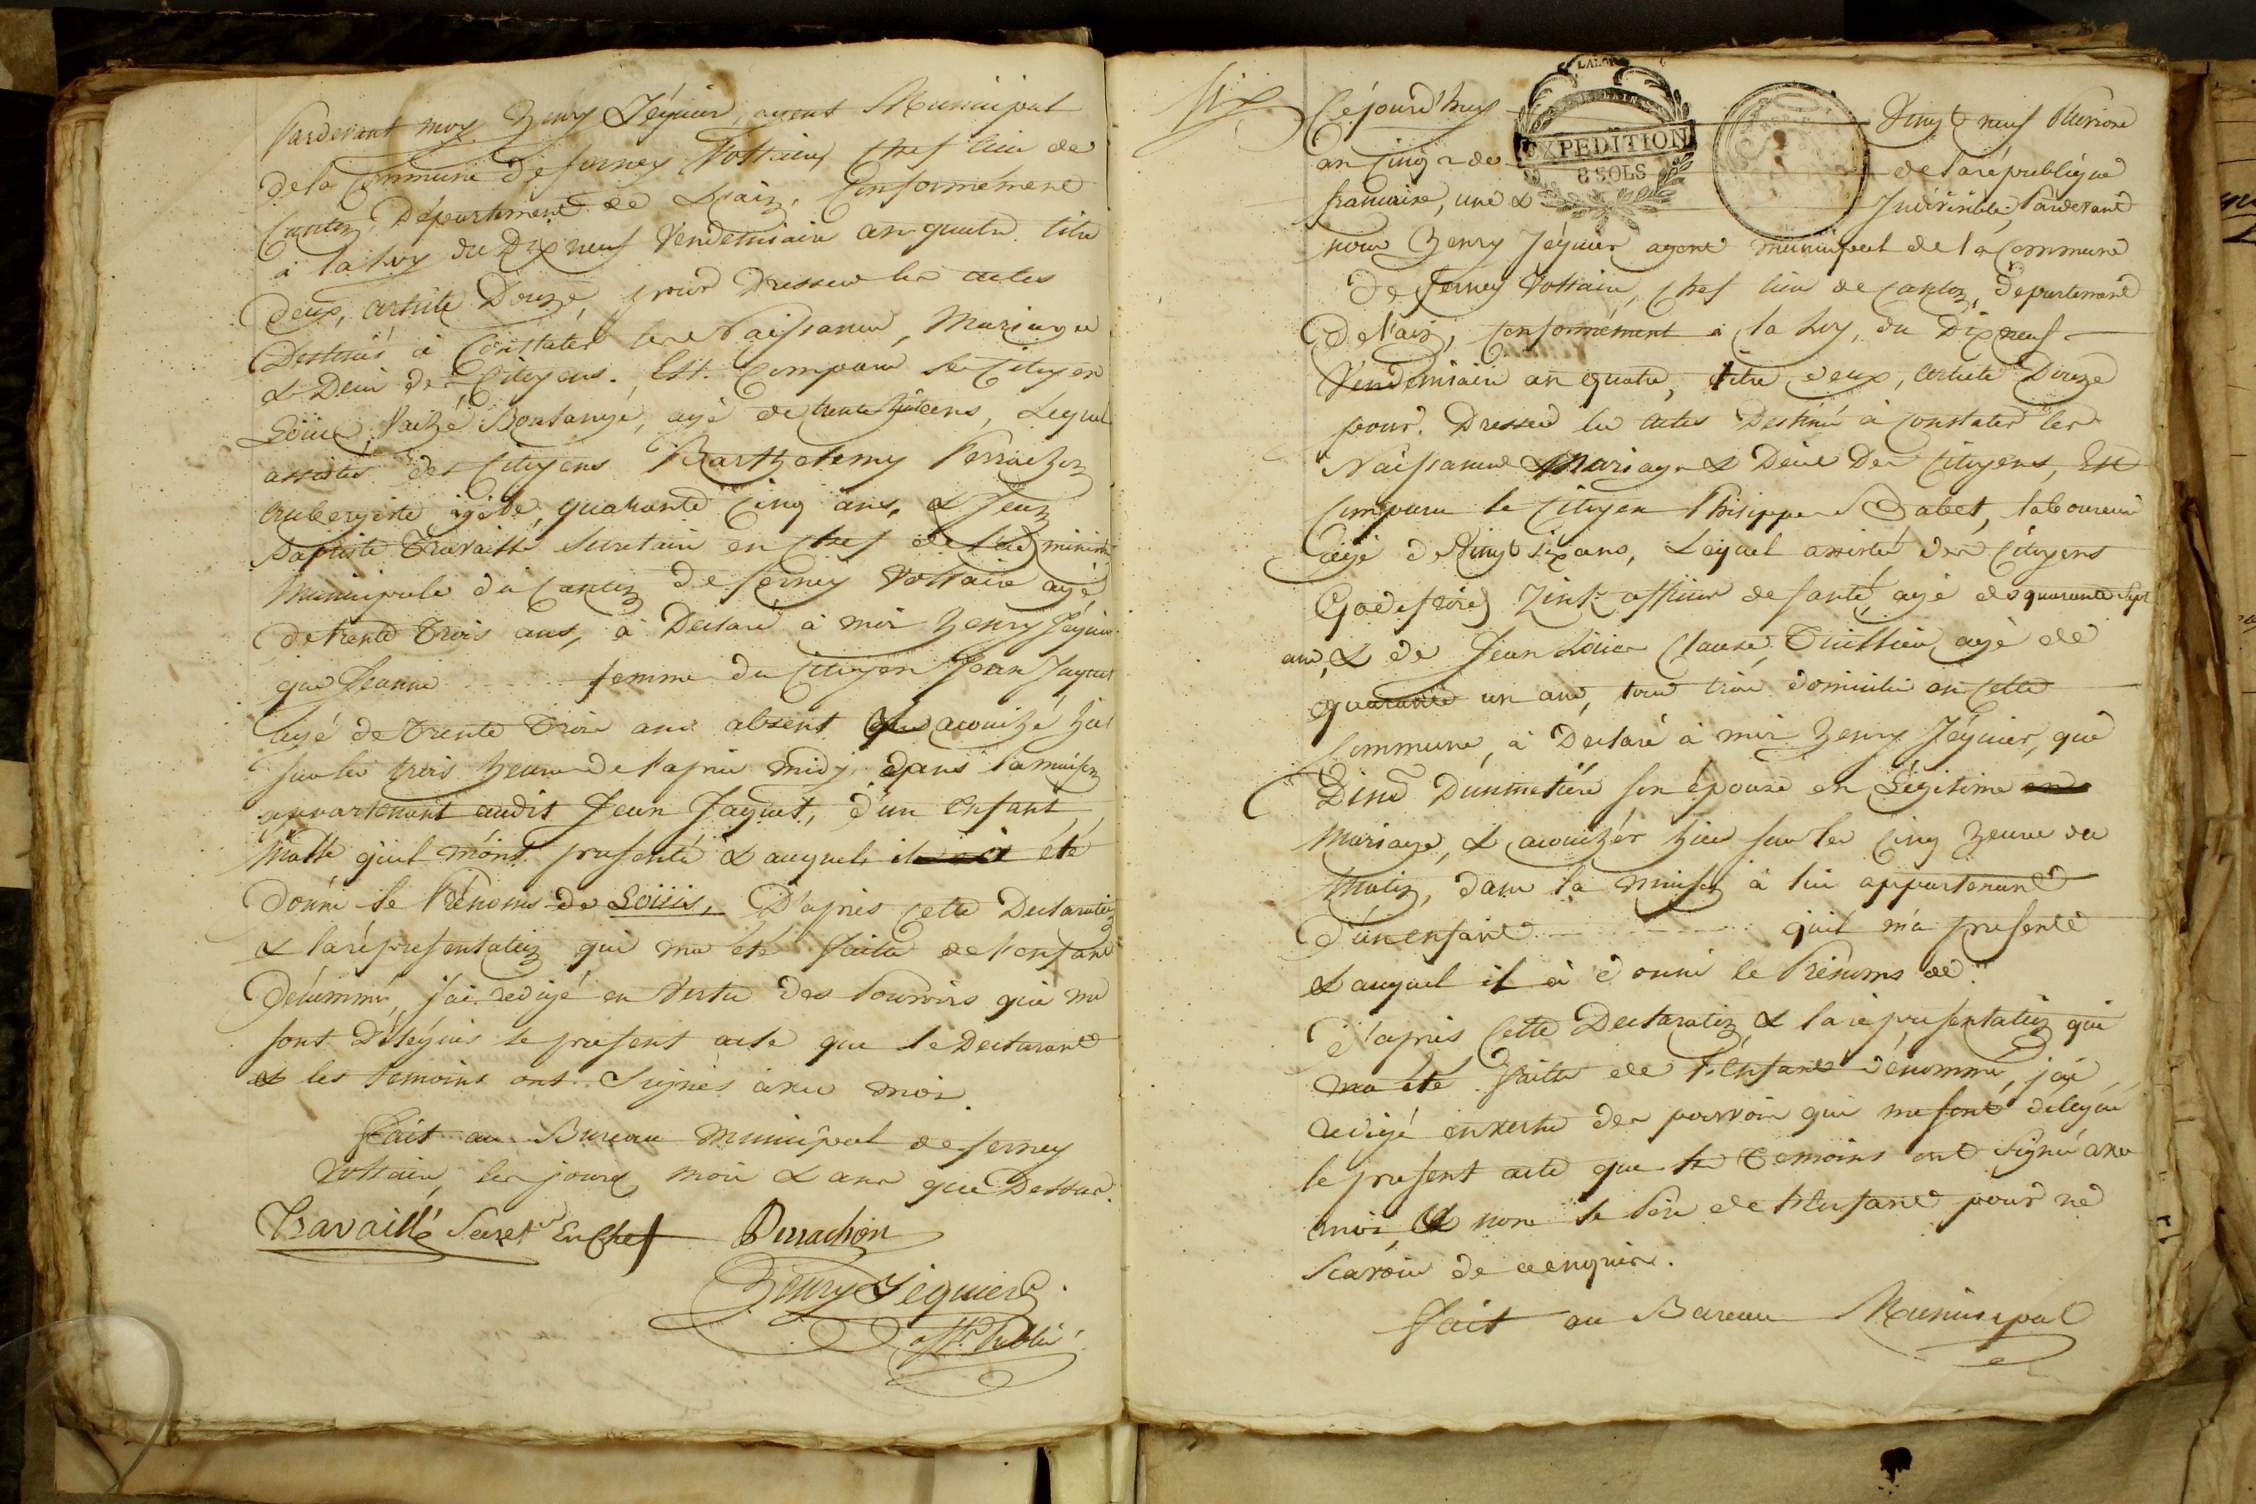 Pardevant moy Henry Jéquier, agent Municipal
de la Commune de ferney Voltaire, Chef lieu de
Canton, Département de L'ain, Conformément
à la Loy du Dix neuf Vendemiaire an quatre titre
deux, article Douze, pour Dresser les actes
Destinés à Constater les Naissances, Mariages
& Deces des Citoyens. Est Comparu le Citoyen
Boulangé, agé de trente huit ans, Lequel
assisté des Citoyens Barthelemy Perrachon
Aubergiste agé de quarante Cinq ans, & Jean
Baptiste Travaillé Secretaire en Chef de l'adminis
Municipale du Canton de ferney Voltaire agé
de trente Trois ans, à Declaré à moi Henry Jéquier
que Jeanne femme du Citoyen Jean Jaquet
agé de Trente Trois ans absent acouché hier
sur les trois heures de l'après midy dans la maison
appartenant audit Jean Jaquet, d'un Enfant
Malle quil m'ont presenté & auquel il a été
Donné le Prénoms de Loüis, D'après cette Declaration
& la réprésentation qui ma été faitte de l'enfant
Dénommé, j'ai redigé en Vertu des Pouvoirs qui me
sont Délégués le present acte que le Declarant
& les temoins ont Signés avec moi.
Fait au Bureau Municipal de ferney
Voltaire, les jours, mois & ans que Dessus.
Travaillé Secret.re En Chef Perrachon
Henry Jequier
off. Public
Six
Cejourd'huy Vingt neuf Pluviose
an Cinq de de la république
francaise, une & Indivisible, Pardevant
LALOI
EXPEDITION
8 SOLS
nous Henry Jéquier agent municipal de la Commune
De Ferney Voltaire, Chef lieu de canton, Departement
De l'ain, Conformément à la Loy, du Dix neuf
Vendemiaire an quatre, titre deux, article Douze
pour Dresser les actes Destiné à constater les
Naissances Mariages & Décés Des Citoyens, Est
Comparu le Citoyen Philippe Laboureur
agé de Vingt six ans, Lequel assisté des Citoyens
Godefroid Zink officier de santé, agé de quarante Sept
ans, & de Jean Loüis Clause, Tuillier, agé de
quarante un ans, tous trois domicilié en Cette
Commune, à Declaré à moi Henry Jéquier, que
son épouse en Légitime
Mariage, & acouchée hier sur les Cinq heures du
Matin, dans la maison à lui appartenant
D'un enfant quil m'a presenté
& auquel il à donné le Prénoms de
D'après Cette Declaration & la réprésentation qui
ma été faitte de l'Enfant dénommé, jai
redigé en vertu des pouvoir qui me sont délegué
le present acte que le Temoins ont Signé avec
moi, & non le Père de l'Enfant pour ne
Scavoir de ce enquis.
Fait au Bureau Municipal